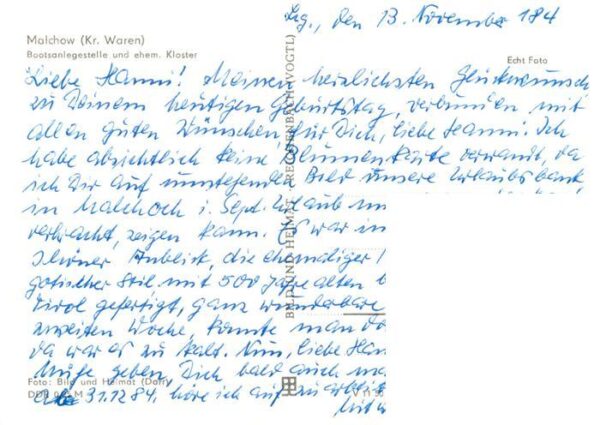 Lzg., den 13. November 184
Malchow (Kr. Waren)
Bootsanlegestelle und ehem. Kloster
Echt Foto
Liebe Hanni! Meinen herzlichsten Glückwunsch
zu Deinem heutigen Geburtstag, verbunden mit
allen guten Wünschen für Dich, liebe Hanni. Ich
habe absichtlich keine Blumenkarte verwandt, da
ich Dir auf umstehenden Bild unsere Urlaubsbank,
in Malchow i. Sept. Urlaub
verbracht, zeigen kann. Es war
schöner Anblick, die ehemalige
gotischer Stil mit 500 Jahre alten
Tirol gefertigt, ganz wunderbare
zweiten Woche, konnte man
da war es zu kalt. Nun, liebe
geben, Dich bald auch
31.12.84. höre ich auf zu
Foto: Bild und Heimat
DDR M
BILD UND HEIMAT REICHENBACH (VOGTL)
V 11 50